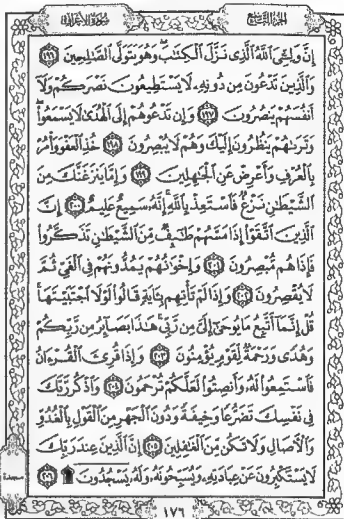 الجزء التاسع
سورة الأعراف
إِنَّ وَلِـِّۧيَ ٱللَّهُ ٱلَّذِى نَزَّلَ ٱلْكِتَٰبَ ۖ وَهُوَ يَتَوَلَّى ٱلصَّٰلِحِينَ ۝١٩٦
وَٱلَّذِينَ تَدْعُونَ مِن دُونِهِۦ لَا يَسْتَطِيعُونَ نَصْرَكُمْ وَلَآ
أَنفُسَهُمْ يَنصُرُونَ ۝١٩٧ وَإِن تَدْعُوهُمْ إِلَى ٱلْهُدَىٰ لَا يَسْمَعُوا۟ ۖ
وَتَرَىٰهُمْ يَنظُرُونَ إِلَيْكَ وَهُمْ لَا يُبْصِرُونَ ۝١٩٨ خُذِ ٱلْعَفْوَ وَأْمُرْ
بِٱلْعُرْفِ وَأَعْرِضْ عَنِ ٱلْجَٰهِلِينَ ۝١٩٩ وَإِمَّا يَنزَغَنَّكَ مِنَ
ٱلشَّيْطَٰنِ نَزْغٌ فَٱسْتَعِذْ بِٱللَّهِ ۚ إِنَّهُۥ سَمِيعٌ عَلِيمٌ ۝٢٠٠ إِنَّ
ٱلَّذِينَ ٱتَّقَوْا۟ إِذَا مَسَّهُمْ طَٰٓئِفٌ مِّنَ ٱلشَّيْطَٰنِ تَذَكَّرُوا۟
فَإِذَا هُم مُّبْصِرُونَ ۝٢٠١ وَإِخْوَٰنُهُمْ يَمُدُّونَهُمْ فِى ٱلْغَىِّ ثُمَّ
لَا يُقْصِرُونَ ۝٢٠٢ وَإِذَا لَمْ تَأْتِهِم بِـَٔايَةٍ قَالُوا۟ لَوْلَا ٱجْتَبَيْتَهَا ۚ
قُلْ إِنَّمَآ أَتَّبِعُ مَا يُوحَىٰٓ إِلَىَّ مِن رَّبِّى ۚ هَٰذَا بَصَآئِرُ مِن رَّبِّكُمْ
وَهُدًى وَرَحْمَةٌ لِّقَوْمٍ يُؤْمِنُونَ ۝٢٠٣ وَإِذَا قُرِئَ ٱلْقُرْءَانُ
فَٱسْتَمِعُوا۟ لَهُۥ وَأَنصِتُوا۟ لَعَلَّكُمْ تُرْحَمُونَ ۝٢٠٤ وَٱذْكُر رَّبَّكَ
فِى نَفْسِكَ تَضَرُّعًا وَخِيفَةً وَدُونَ ٱلْجَهْرِ مِنَ ٱلْقَوْلِ بِٱلْغُدُوِّ
وَٱلْءَاصَالِ وَلَا تَكُن مِّنَ ٱلْغَٰفِلِينَ ۝٢٠٥ إِنَّ ٱلَّذِينَ عِندَ رَبِّكَ
لَا يَسْتَكْبِرُونَ عَنْ عِبَادَتِهِۦ وَيُسَبِّحُونَهُۥ وَلَهُۥ يَسْجُدُونَ ۩ ۝٢٠٦
سجدة
١٧٦